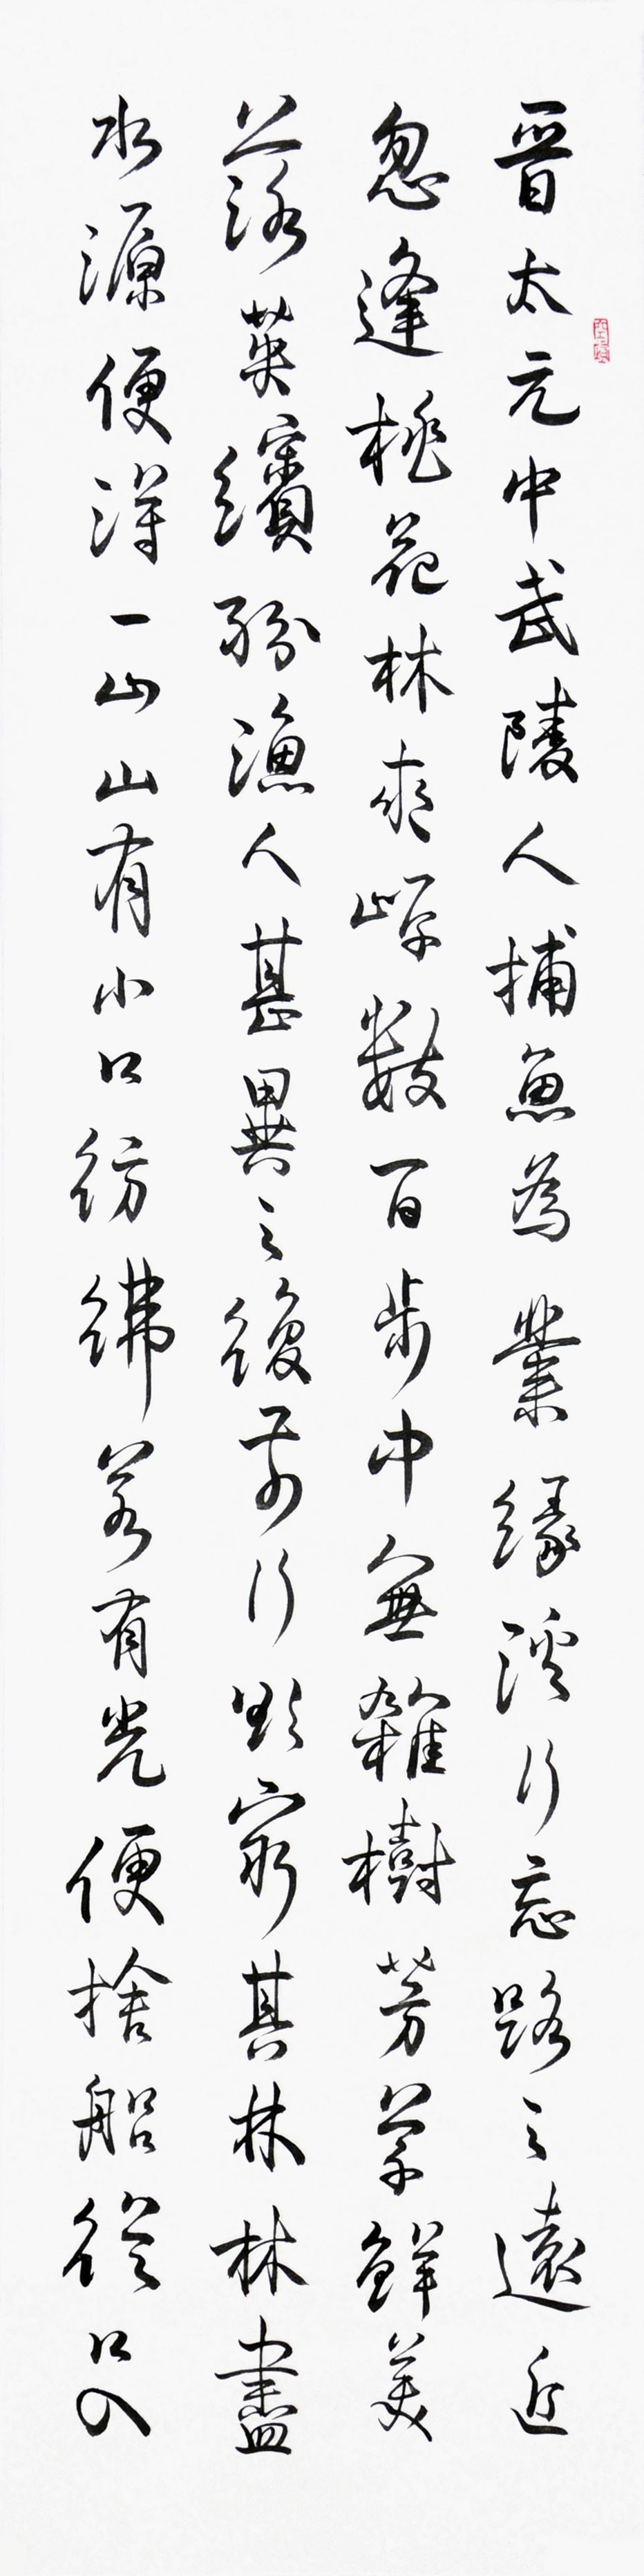 晉太元中武陵人捕魚為業緣溪行忘路之遠近
忽逢桃花林夾岸數百步中無雜樹芳草鮮美
落英繽紛漁人甚異之復前行欲窮其林林盡
水源便得一山山有小口彷彿若有光便捨船從口入